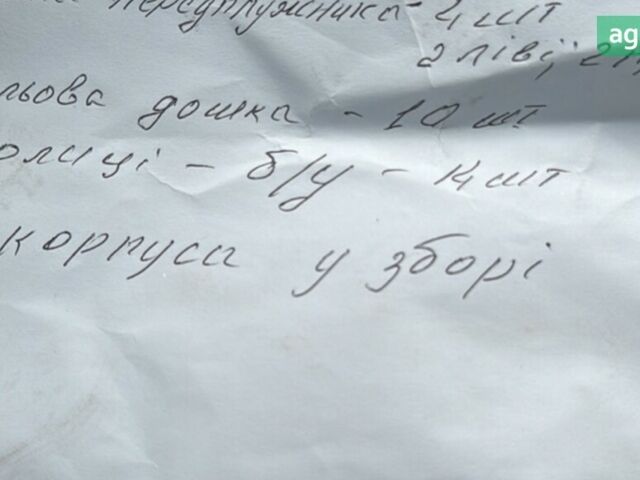 передплужника - 4 шт
2 ліві, 2
льова дошка - 10 шт
олиці - б/у - 14 шт
корпуса у зборі
ag